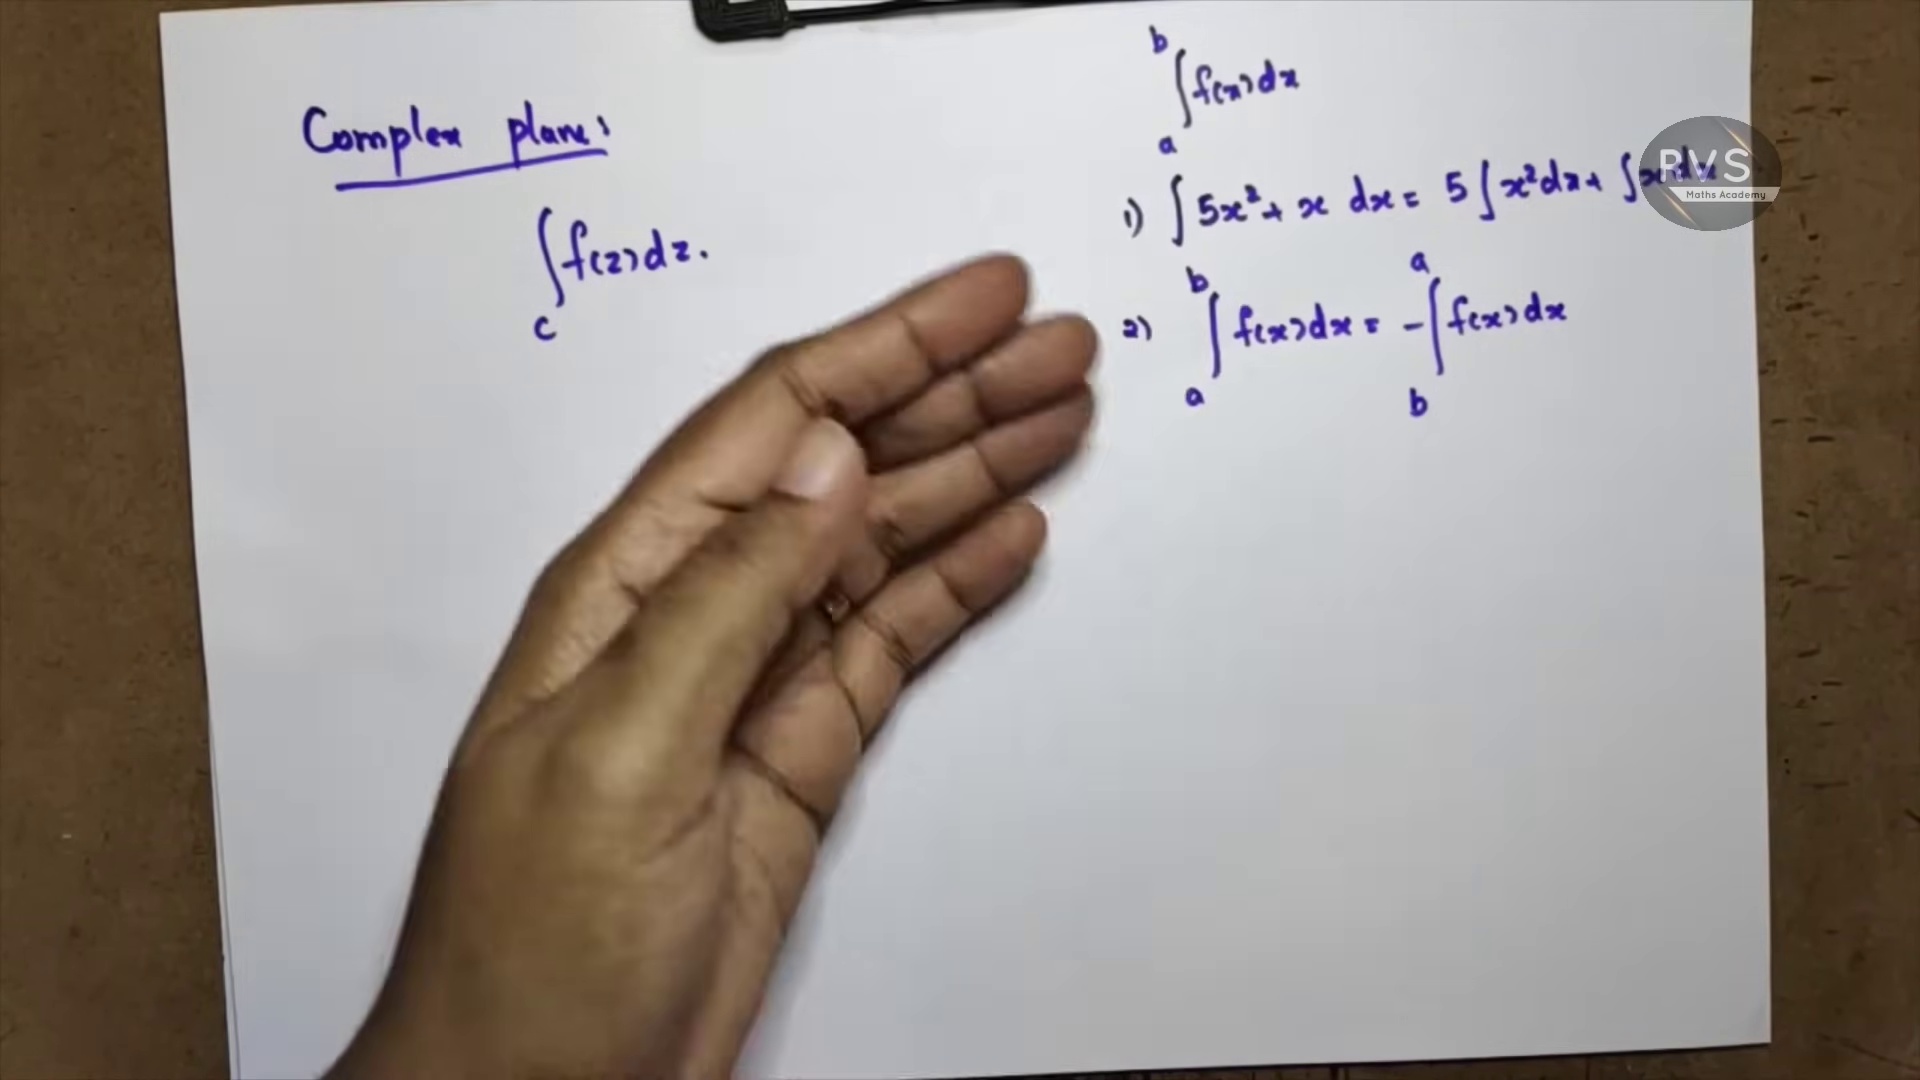 Complex plane:
∫_C f(z)dz.
∫_a^b f(x)dx
1) ∫ 5x² + x dx = 5∫x²dx + ∫x dx
2) ∫_a^b f(x)dx = -∫_b^a f(x)dx
RVS
Maths Academy